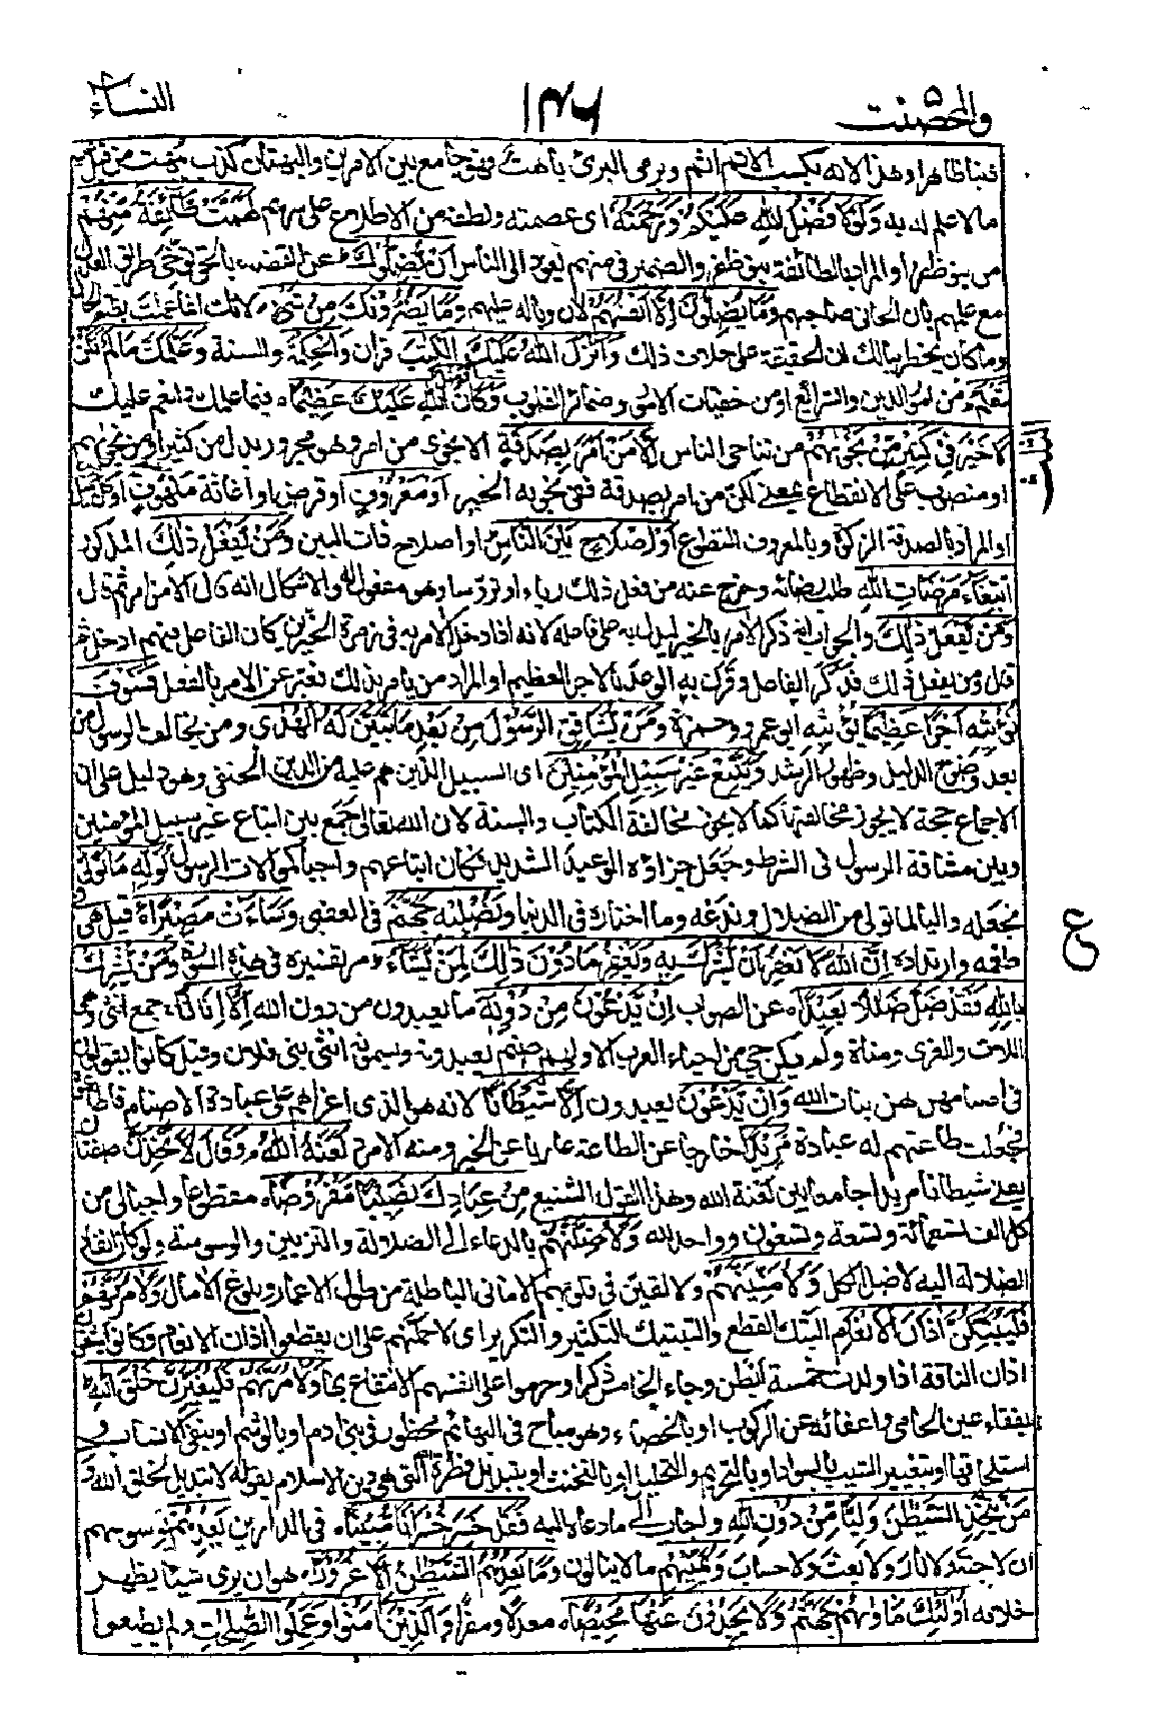 والمحصنت ۵
۱۳۶
النساء
ذنبا ظاهرا وهذا لانه بكسب الاثم اثم وبرمى البرئ باهت فهو جامع بين الامرين والبهتان كذب يبهت من قيل عليه
ما لا علم له به وَلَوْلَا فَضْلُ اللهِ عَلَيْكَ وَرَحْمَتُهٗ اى عصمته ولطفه من الاطلاع على سرهم لَهَمَّتْ طَّآئِفَةٌ مِّنْهُمْ
من بنى ظفر او المراد بالطائفة بنو ظفر والضمير فى منهم يعود الى الناس اَنْ يُّضِلُّوْكَ عن القضاء بالحق وتوخى طريق العدل
مع علمهم بان الجانى صاحبهم وَمَا يُضِلُّوْنَ اِلَّآ اَنْفُسَهُمْ لان وباله عليهم وَمَا يَضُرُّوْنَكَ مِنْ شَىْءٍ لانك انما عملت بظاهر الحال
وما كان يخطر ببالك ان الحقيقة على خلاف ذلك وَاَنْزَلَ اللهُ عَلَيْكَ الْكِتٰبَ قران وَالْحِكْمَةَ والسنة وَعَلَّمَكَ مَا لَمْ تَكُنْ
تَعْلَمُ من امور الدين والشرائع او من خفيات الامور وضمائر القلوب وَكَانَ فَضْلُ اللهِ عَلَيْكَ عَظِيْمًا فيما علمك وانعم عليك
لَا خَيْرَ فِىْ كَثِيْرٍ مِّنْ نَّجْوٰىهُمْ من تناجى الناس اِلَّا مَنْ اَمَرَ بِصَدَقَةٍ الا نجوى من امر وهو مجرور بدل من كثير او من نجواهم
او منصوب على الانقطاع بمعنى لكن من امر بصدقة ففى نجواه الخير اَوْ مَعْرُوْفٍ او قرض او اغاثة ملهوف او كل جميل
او المراد بالصدقة الزكوة وبالمعروف التطوع اَوْ اِصْلَاحٍ بَيْنَ النَّاسِ او اصلاح ذات البين وَمَنْ يَّفْعَلْ ذٰلِكَ المذكور
ابْتِغَآءَ مَرْضَاتِ اللهِ طلب رضائه وخرج عنه من فعل ذلك رياء او ترؤسا وهو مفعول له والاشكال انه قال الا من امر ثم قال
وَمَنْ يَّفْعَلْ ذٰلِكَ والجواب انه ذكر الامر بالخير ليدل به على فاعله لانه اذا دخل الامر به فى زمرة الخيرين كان الفاعل فيهم ادخل ثم
قال ومن يفعل ذلك فذكر الفاعل وقرن به الوعد بالاجر العظيم او المراد من يامر بذلك فعبر عن الامر بالفعل فَسَوْفَ
نُؤْتِيْهِ اَجْرًا عَظِيْمًا يؤتيه ابو عمرو وحمزة وَمَنْ يُّشَاقِقِ الرَّسُوْلَ مِنْ بَعْدِ مَا تَبَيَّنَ لَهُ الْهُدٰى ومن يخالف الرسول من
بعد وضوح الدليل وظهور الرشد وَيَتَّبِعْ غَيْرَ سَبِيْلِ الْمُؤْمِنِيْنَ اى السبيل الذين هم عليه من الدين الحنفى وهو دليل على ان
الاجماع حجة لا يجوز مخالفتها كما لا يجوز مخالفة الكتاب والسنة لان الله تعالى جمع بين اتباع غير سبيل المؤمنين
وبين مشاقة الرسول فى الشرط وجعل جزاؤه الوعيد الشديد فكان اتباعهم واجبا كموالات الرسول نُوَلِّهٖ مَا تَوَلّٰى
نجعله واليا لما تولى من الضلال وندعه وما اختاره فى الدنيا وَنُصْلِهٖ جَهَنَّمَ فى العقبى وَسَآءَتْ مَصِيْرًا قيل هى فى
طعمه وارتداده اِنَّ اللهَ لَا يَغْفِرُ اَنْ يُّشْرَكَ بِهٖ وَيَغْفِرُ مَا دُوْنَ ذٰلِكَ لِمَنْ يَّشَآءُ مر تفسيره فى هذه السورة وَمَنْ يُّشْرِكْ
بِاللهِ فَقَدْ ضَلَّ ضَلٰلًا بَعِيْدًا عن الصواب اِنْ يَّدْعُوْنَ مِنْ دُوْنِهٖ ما يعبدون من دون الله اِلَّآ اِنٰثًا جمع انثى وهى
اللات والعزى ومناة ولم يكن حى من احياء العرب الا ولهم صنم يعبدونه ويسمونه انثى بنى فلان وقيل كانوا يقولون
فى اصنامهم هن بنات الله وَاِنْ يَّدْعُوْنَ يعبدون اِلَّا شَيْطٰنًا لانه هو الذى اغراهم على عبادة الاصنام فاطاعوه
فجعلت طاعتهم له عبادة مَّرِيْدًا خارجا عن الطاعة عاريا عن الخير ومنه الامرد لَعَنَهُ اللهُ وَقَالَ لَاَتَّخِذَنَّ صفتان
يعنى شيطانا مريدا جامعا بين لعنة الله وهذا القول الشنيع مِنْ عِبَادِكَ نَصِيْبًا مَّفْرُوْضًا مقطوعا واجبا لى من
كل الف تسعمائة وتسعة وتسعون وواحد لله وَّلَاُضِلَّنَّهُمْ بالدعاء الى الضلالة والتزيين والوسوسة ولو كان انفاذ
الضلالة اليه لاضل الكل وَلَاُمَنِّيَنَّهُمْ ولالقين فى قلوبهم الامانى الباطلة من طول الاعمار وبلوغ الآمال وَلَاٰمُرَنَّهُمْ
فَلَيُبَتِّكُنَّ اٰذَانَ الْاَنْعَامِ البتك القطع والتبتيك التكثير والتكرير اى لاحملنهم على ان يقطعوا اذان الانعام وكانوا يشقون
اذان الناقة اذا ولدت خمسة ابطن وجاء الخامس ذكرا وحرموا على انفسهم الانتفاع بها وَلَاٰمُرَنَّهُمْ فَلَيُغَيِّرُنَّ خَلْقَ اللهِ
بفقاء عين الحامى واعفائه عن الركوب او بالخصاء وهو مباح فى البهائم محظور فى بنى ادم او بالوشم او بنفى الانساب و
استلحاقها او بتغيير الشيب بالسواد او بالتحريم والتحليل او بالتخنث او بتبديل فطرة الله التى هى دين الاسلام لقوله لا تبديل لخلق الله وَ
مَنْ يَّتَّخِذِ الشَّيْطٰنَ وَلِيًّا مِّنْ دُوْنِ اللهِ واجاب الى ما دعاه اليه فَقَدْ خَسِرَ خُسْرَانًا مُّبِيْنًا فى الدارين يَعِدُهُمْ يوسوسهم
ان لا جنة ولا نار ولا بعث ولا حساب وَيُمَنِّيْهِمْ ما لا ينالون وَمَا يَعِدُهُمُ الشَّيْطٰنُ اِلَّا غُرُوْرًا هو ان يرى شيئا يظهر
خلافه اُولٰٓئِكَ مَاْوٰىهُمْ جَهَنَّمُ وَلَا يَجِدُوْنَ عَنْهَا مَحِيْصًا معدلا ومفرا وَالَّذِيْنَ اٰمَنُوْا وَعَمِلُوا الصّٰلِحٰتِ ولم يطيعوا
الثلثة
ع